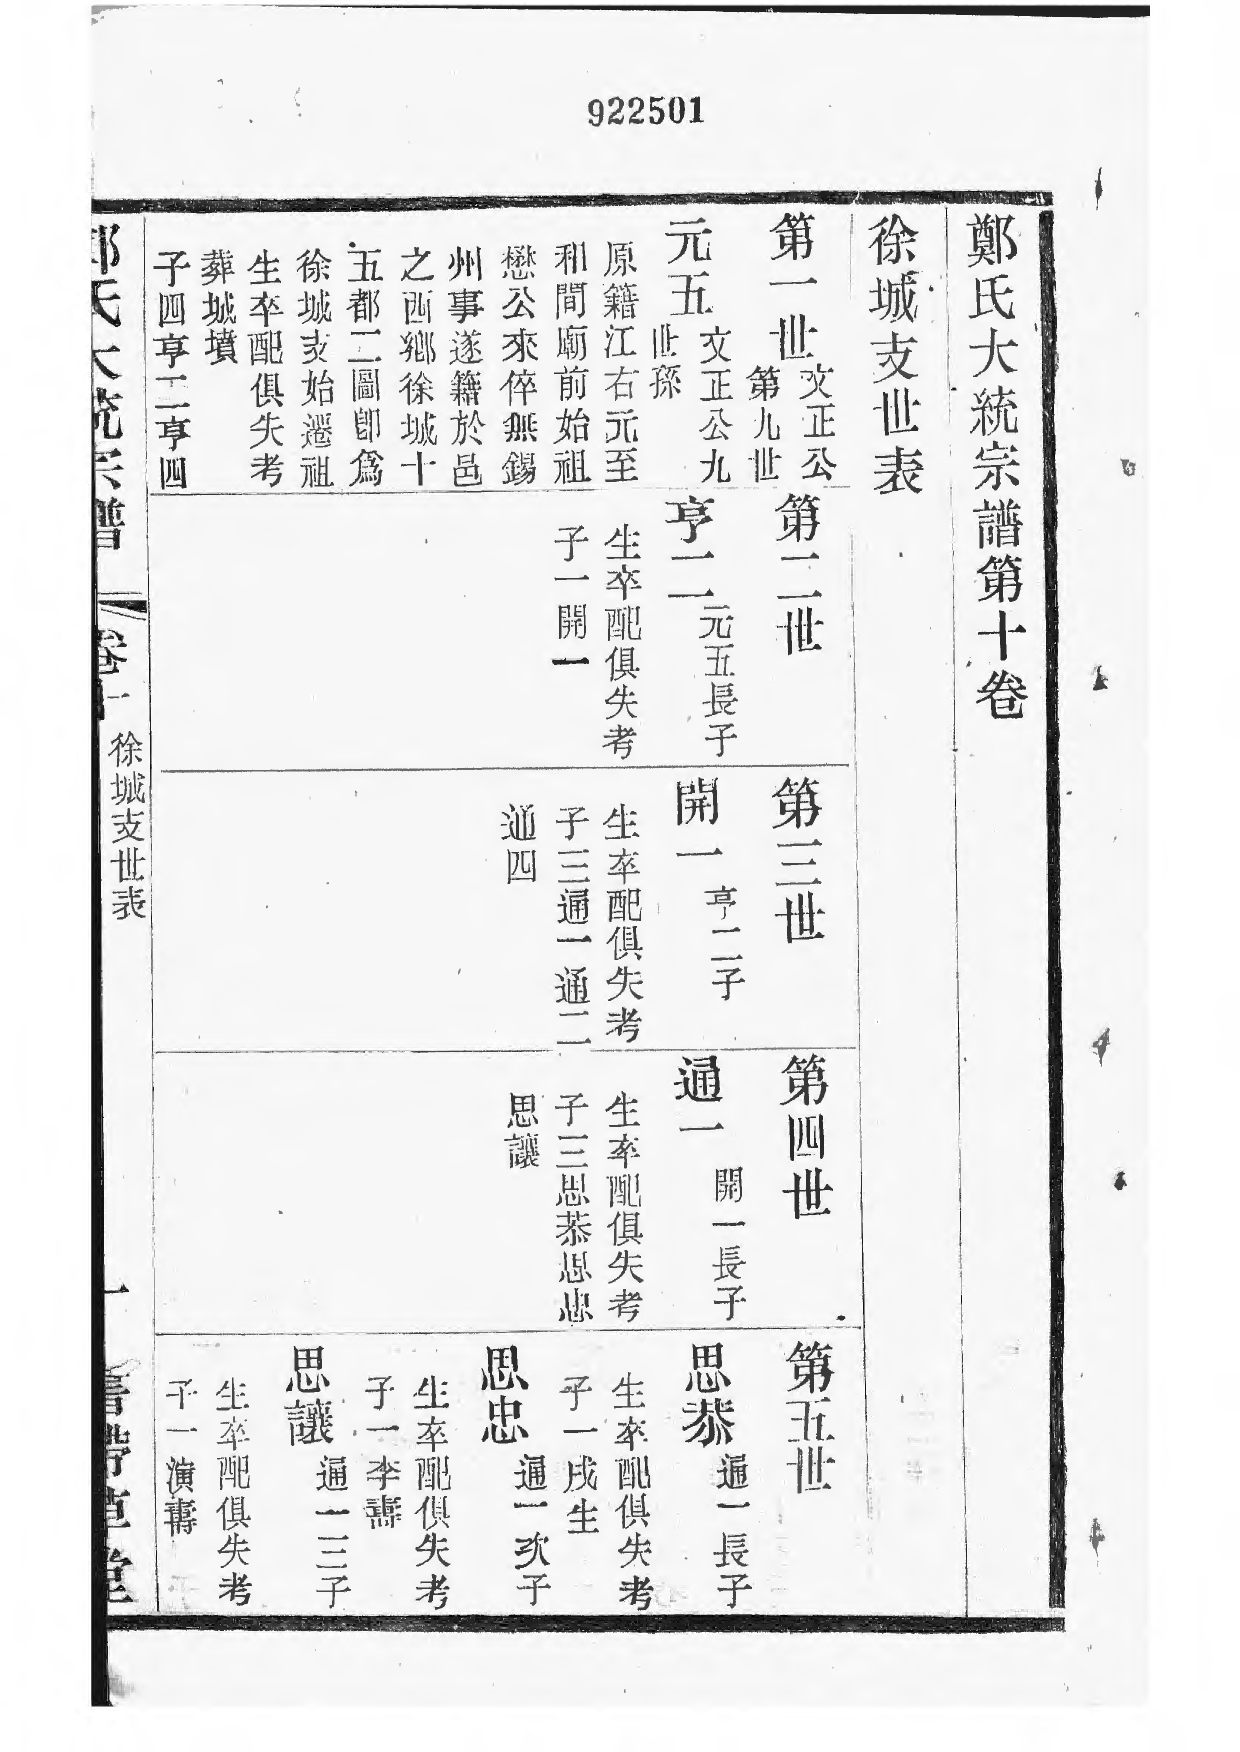 922501
鄭氏大統宗譜第十卷
徐城支世表
第一世
文正公
第九世
元五
文正公九
世孫
原籍江右元至
和間廟前始祖
懋公來倅無錫
州事遂籍於邑
之西鄉徐城十
五都二圖卽爲
徐城支始遷祖
生卒配俱失考
葬城墳
子四亨二亨四
第二世
亨二
元五長子
生卒配俱失考
子一開一
第三世
開一
亨二子
生卒配俱失考
子三通一通二
通四
第四世
通一
開一長子
生卒配俱失考
子三思恭思忠
思讓
第五世
思恭
通一長子
生卒配俱失考
子一戌生
思忠
通一次子
生卒配俱失考
子一李壽
思讓
通一三子
生卒配俱失考
子一演壽
鄭氏大統宗譜
卷十
徐城支世表
一
書帶草堂